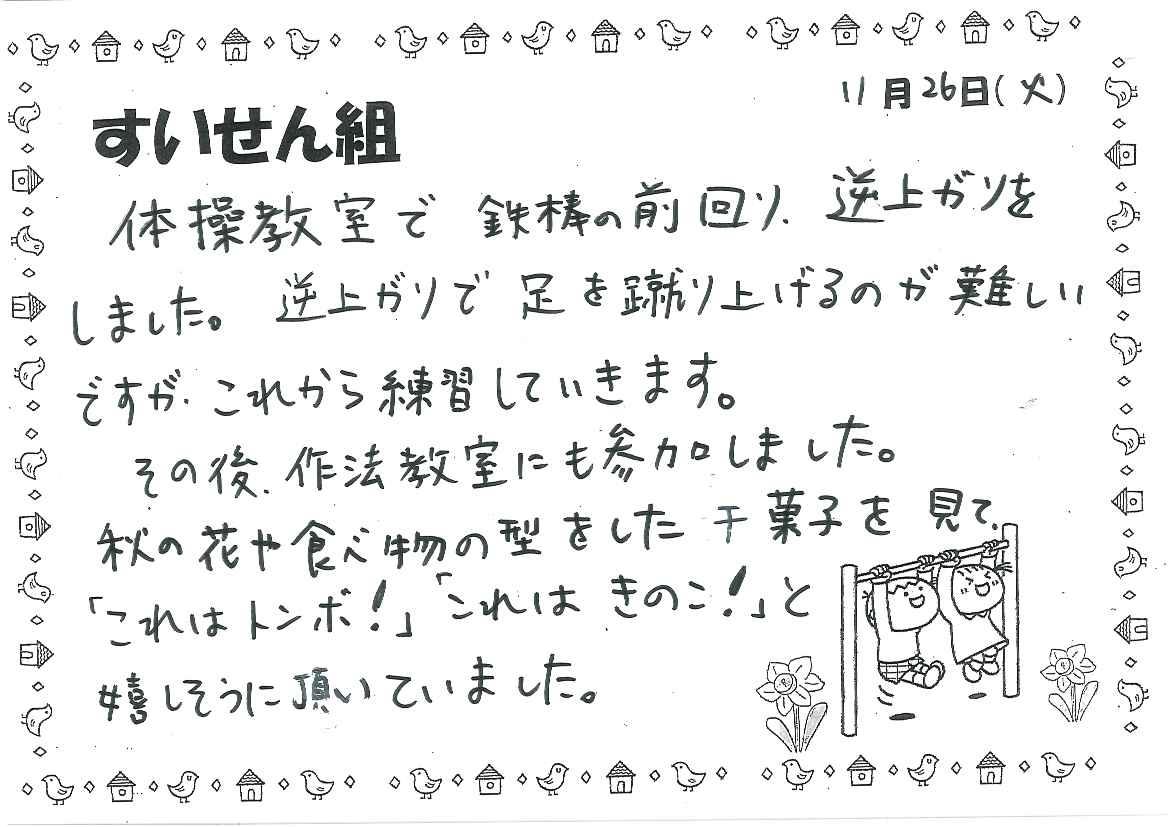 11月26日(火)
すいせん組
体操教室で 鉄棒の前回り、逆上がりを
しました。 逆上がりで 足を蹴り上げるのが難しい
ですが、これから練習していきます。
その後、作法教室にも参加しました。
秋の花や食べ物の型をした干菓子を見て、
「これはトンボ!」「これは きのこ!」と
嬉しそうに頂いていました。